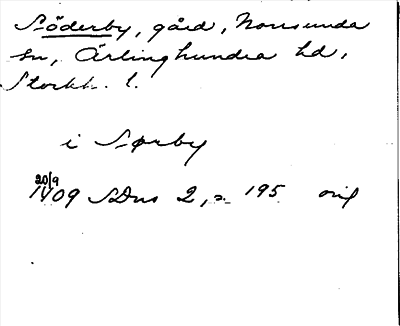 Söderby, gård, Norrsunda
sn, Ärlinghundra hd,
Stockh. l.
i Sørby
20/9
1409 SDns 2, s. 195 orig